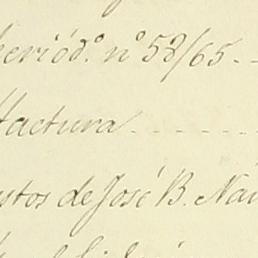 periód.º nº 58/65. -
factura - - - - -
ustos de José B. Nav